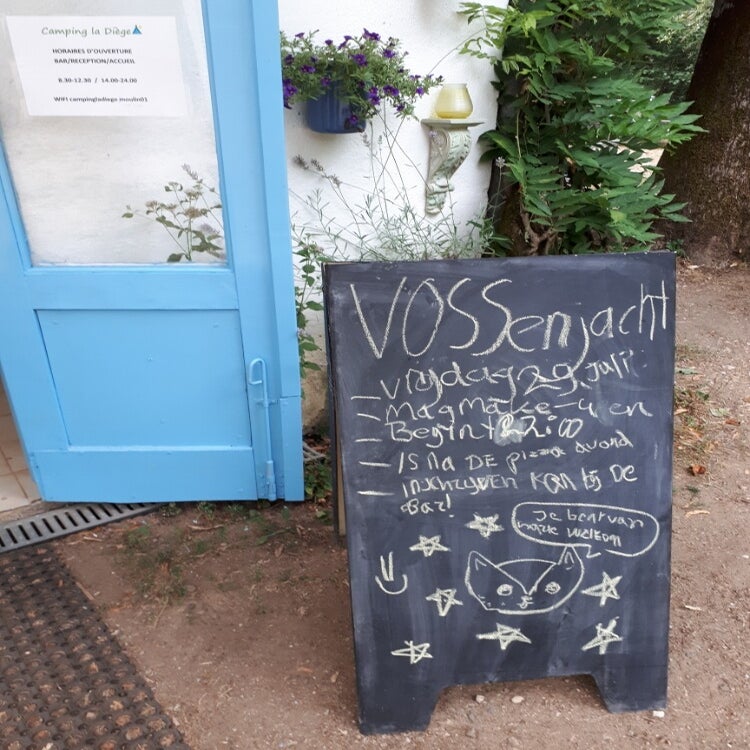 Camping la Diège
HORAIRES D'OUVERTURE
BAR/RECEPTION/ACCUEIL
8.30-12.30 / 14.00-24.00
WIFI campingladiege moulin01
VOSSenjacht
- vrijdag 29 juli
- mag make-up en
- Begint 22:00
- is na DE pizza avond
- inschrijven kan bij DE
Bar!
Je bent van
harte welkom